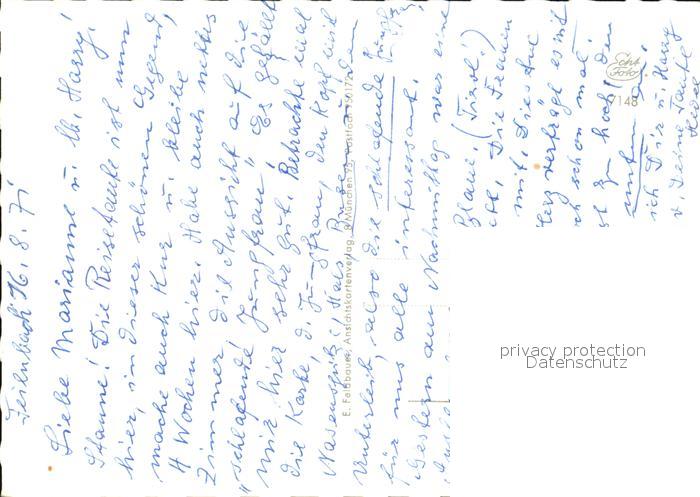 Feilnbach 16.8.71
Liebe Marianne u. lb. Harry!
Staune! Die Reisetante ist nun
hier, in dieser schönen Gegend,
mache auch Kur u. bleibe
4 Wochen hier. Habe auch nettes
Zimmer, die Aussicht auf die
"schlafende Jungfrau". Es gefällt
mir hier sehr gut. Betrachte mal
die Karte, d. Jungfrau, den Kopf mit
Nasenspitz, Hals, Busen und den
Unterleib, also die schlafende Jungfr.
für uns alle interessant.
Gestern am Nachmittag war eine
(Tirol.)
Die Frauen
mit. Dies
Herz verträgt es mit
schon mal
zu hoch! Den
unten
ich Dir u. Harry
v. Deine Tante
E. Feldbauer, Ansichtskartenverlag, 8 München 13, Postfach
Echt
Foto
148
privacy protection
Datenschutz